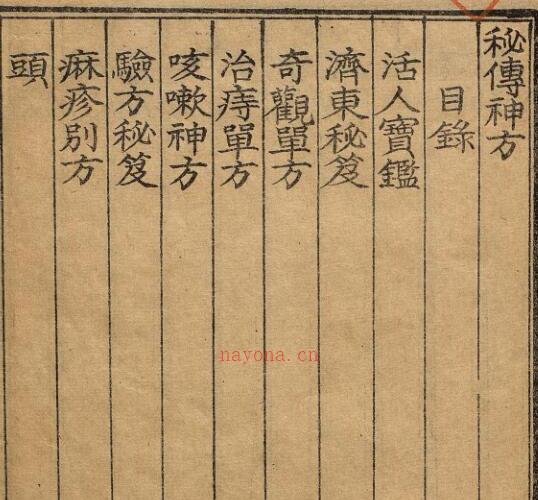 秘傳神方
目錄
活人寶鑑
濟東秘笈
奇觀單方
治痔單方
咳嗽神方
驗方秘笈
麻疹別方
頭
nayona.cn